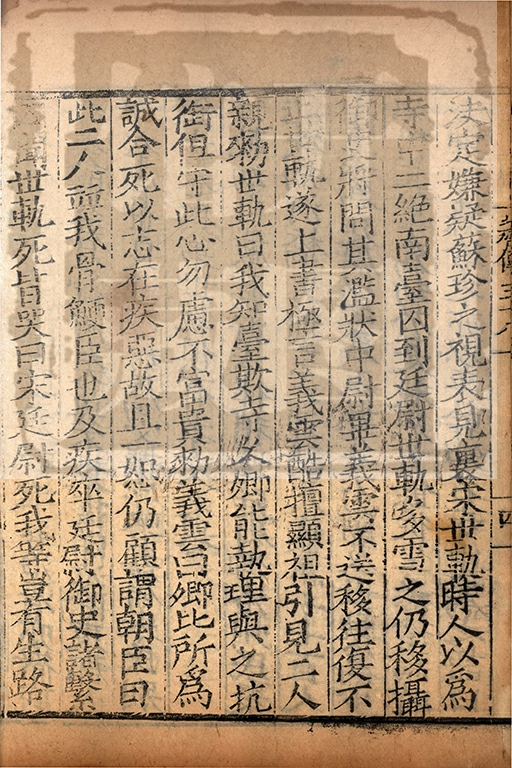 決定嫌疑蘇珍之視表見裏宋世軌時人以爲
寺中二絕南臺囚到廷尉世軌多雪之仍移攝
御史將問其濫狀中尉畢義雲不送移往復不
止世軌遂上書極言義雲酷擅顯祖引見二人
親勑世軌曰我知臺欺寺久卿能執理與之抗
衙但守此心勿慮不富貴勑義雲曰卿比所爲
誠合死以志在疾惡故且一恕仍顧謂朝臣曰
此二人並我骨鯁臣也及疾卒廷尉御史諸繫
囚聞世軌死皆哭曰宋廷尉死我等豈有生路
四